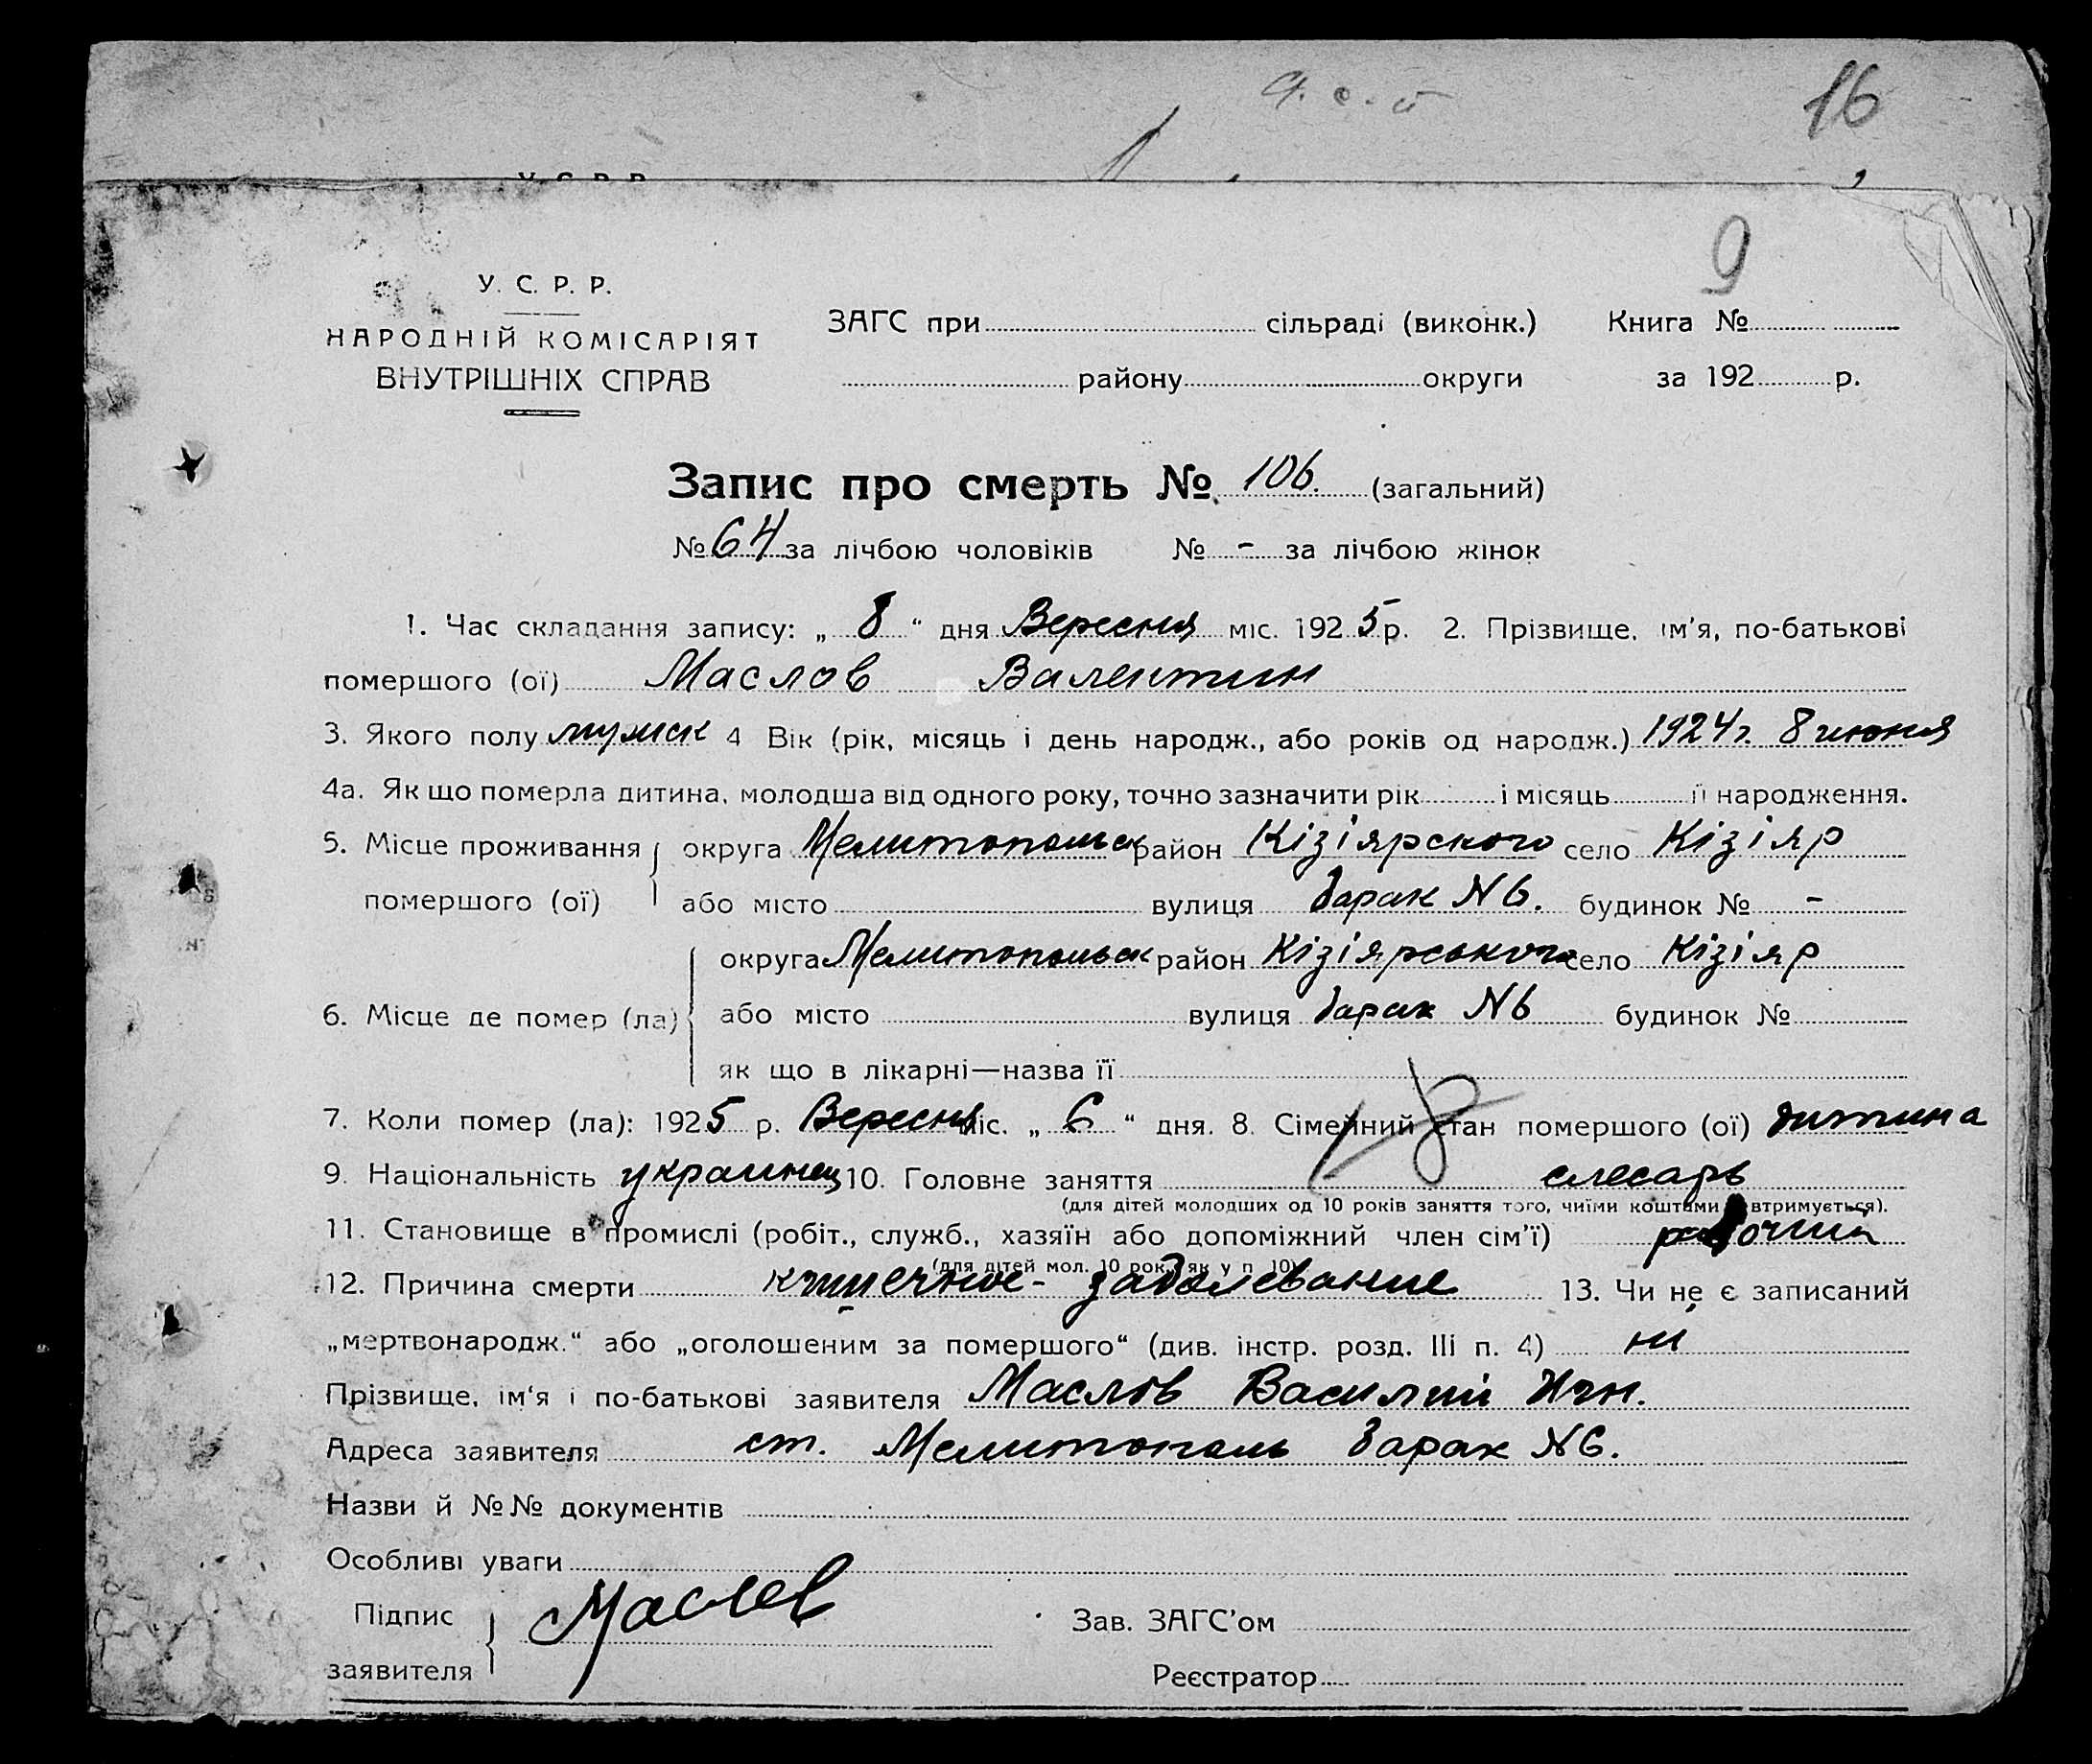 16
9
У. С. Р. Р.
НАРОДНІЙ КОМІСАРІЯТ
ВНУТРІШНІХ СПРАВ
ЗАГС при сільраді (виконк.) Книга №
району округи за 192 р.
Запис про смерть № 106. (загальний)
№ 64 за лічбою чоловіків № - за лічбою жінок
1. Час складання запису: „ 8 “ дня Вересня міс. 1925 р. 2. Прізвище, ім'я, по-батькові
помершого (ої) Маслов Валентин
3. Якого полу мужск 4 Вік (рік, місяць і день народж., або років од народж.) 1924 г. 8 июня
4а. Як що померла дитина, молодша від одного року, точно зазначити рік і місяць її народження.
5. Місце проживання округа Мелитопольск район Кізіярского село Кізіяр
помершого (ої) або місто вулиця барак N 6. будинок № -
округа Мелитопольск район Кізіярського село Кізіяр
6. Місце де помер (ла) або місто вулиця барак N 6 будинок №
як що в лікарні—назва її
7. Коли помер (ла): 1925 р. Вересня міс. „ 6 “ дня. 8. Сімейний стан помершого (ої) дитина
9. Національність украинец 10. Головне заняття слесарь
(для дітей молодших од 10 років заняття того, чиїми коштами втримується).
11. Становище в промислі (робіт., служб., хазяїн або допоміжний член сім'ї) рабочий
(для дітей мол. 10 рок. як у п 10)
12. Причина смерти кишечное - заболевание 13. Чи не є записаний
„мертвонародж.“ або „оголошеним за помершого“ (див. інстр. розд. III п. 4) ні
Прізвище, ім'я і по-батькові заявителя Маслов Василий Игн.
Адреса заявителя ст. Мелитополь барак N 6.
Назви й №№ документів
Особливі уваги
Підпис Маслов Зав. ЗАГС'ом
заявителя Реєстратор